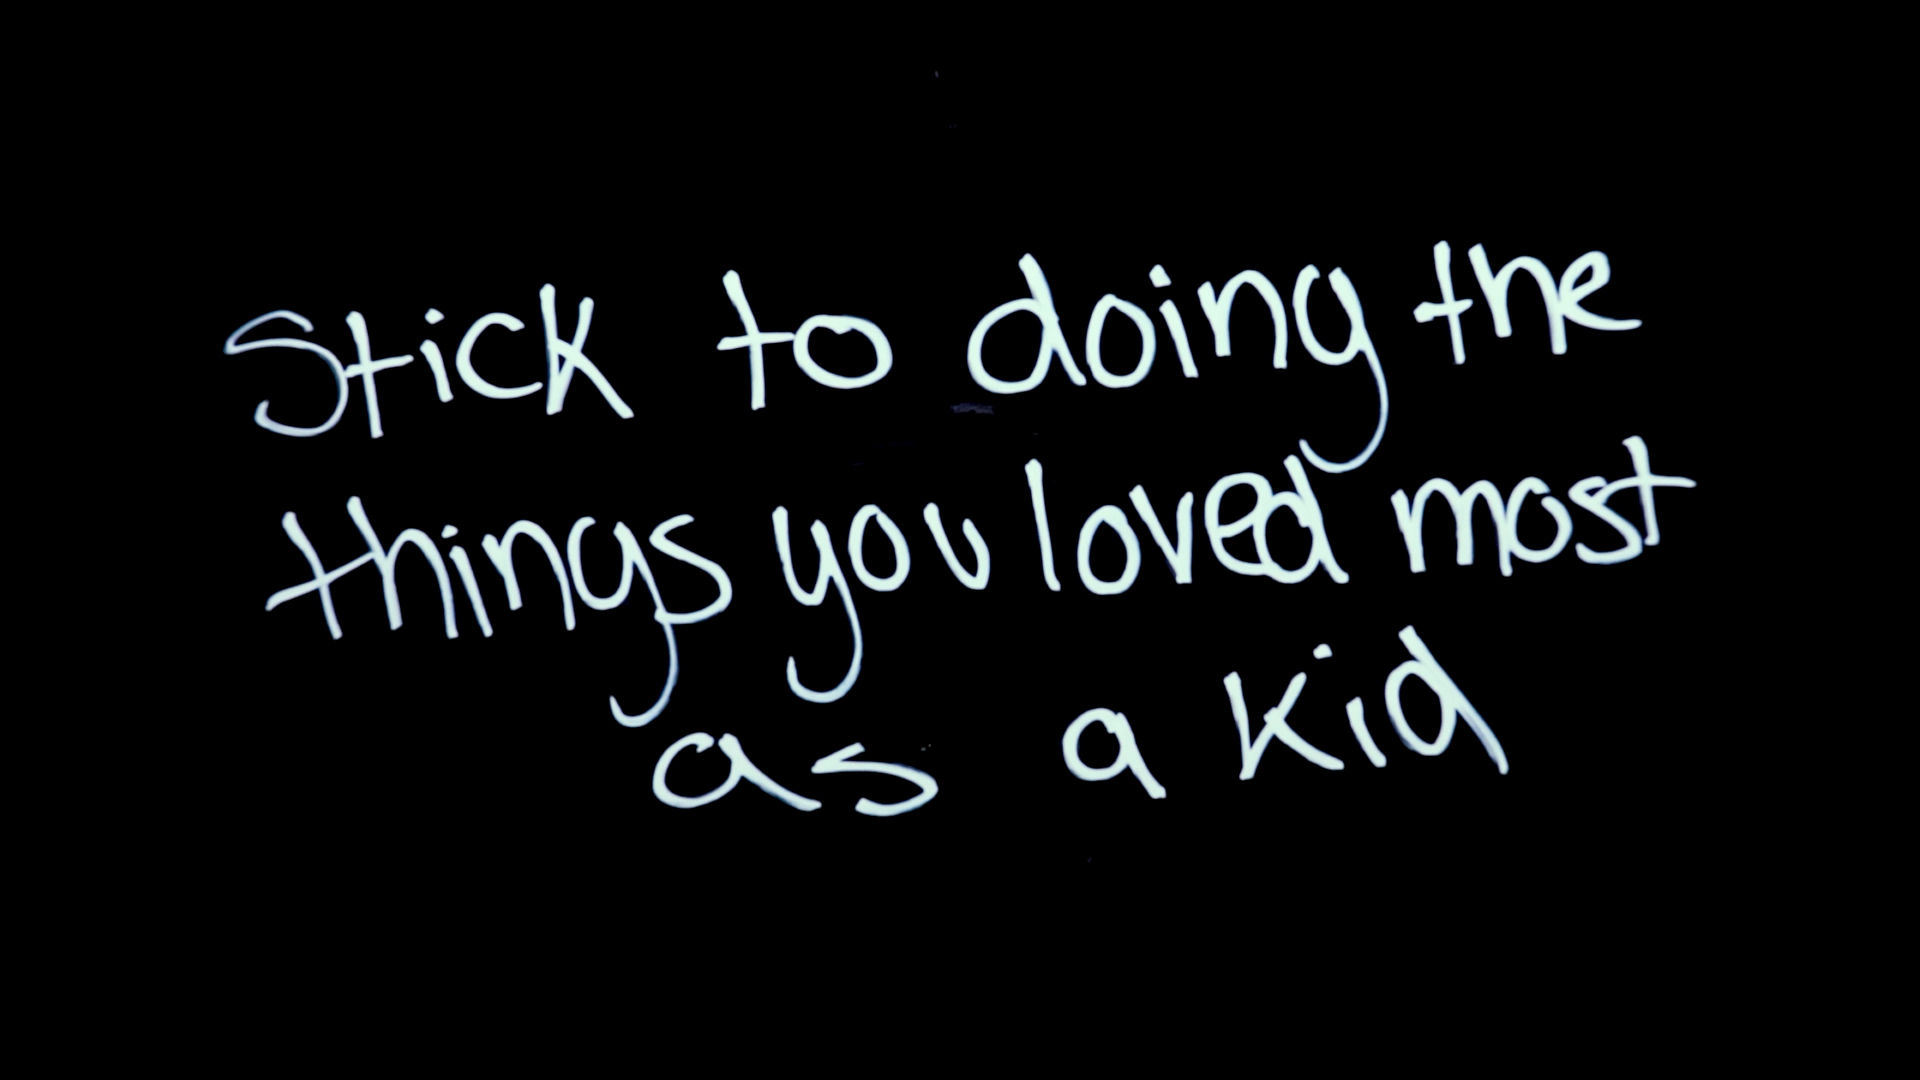 Stick to doing the
things you loved most
as a kid